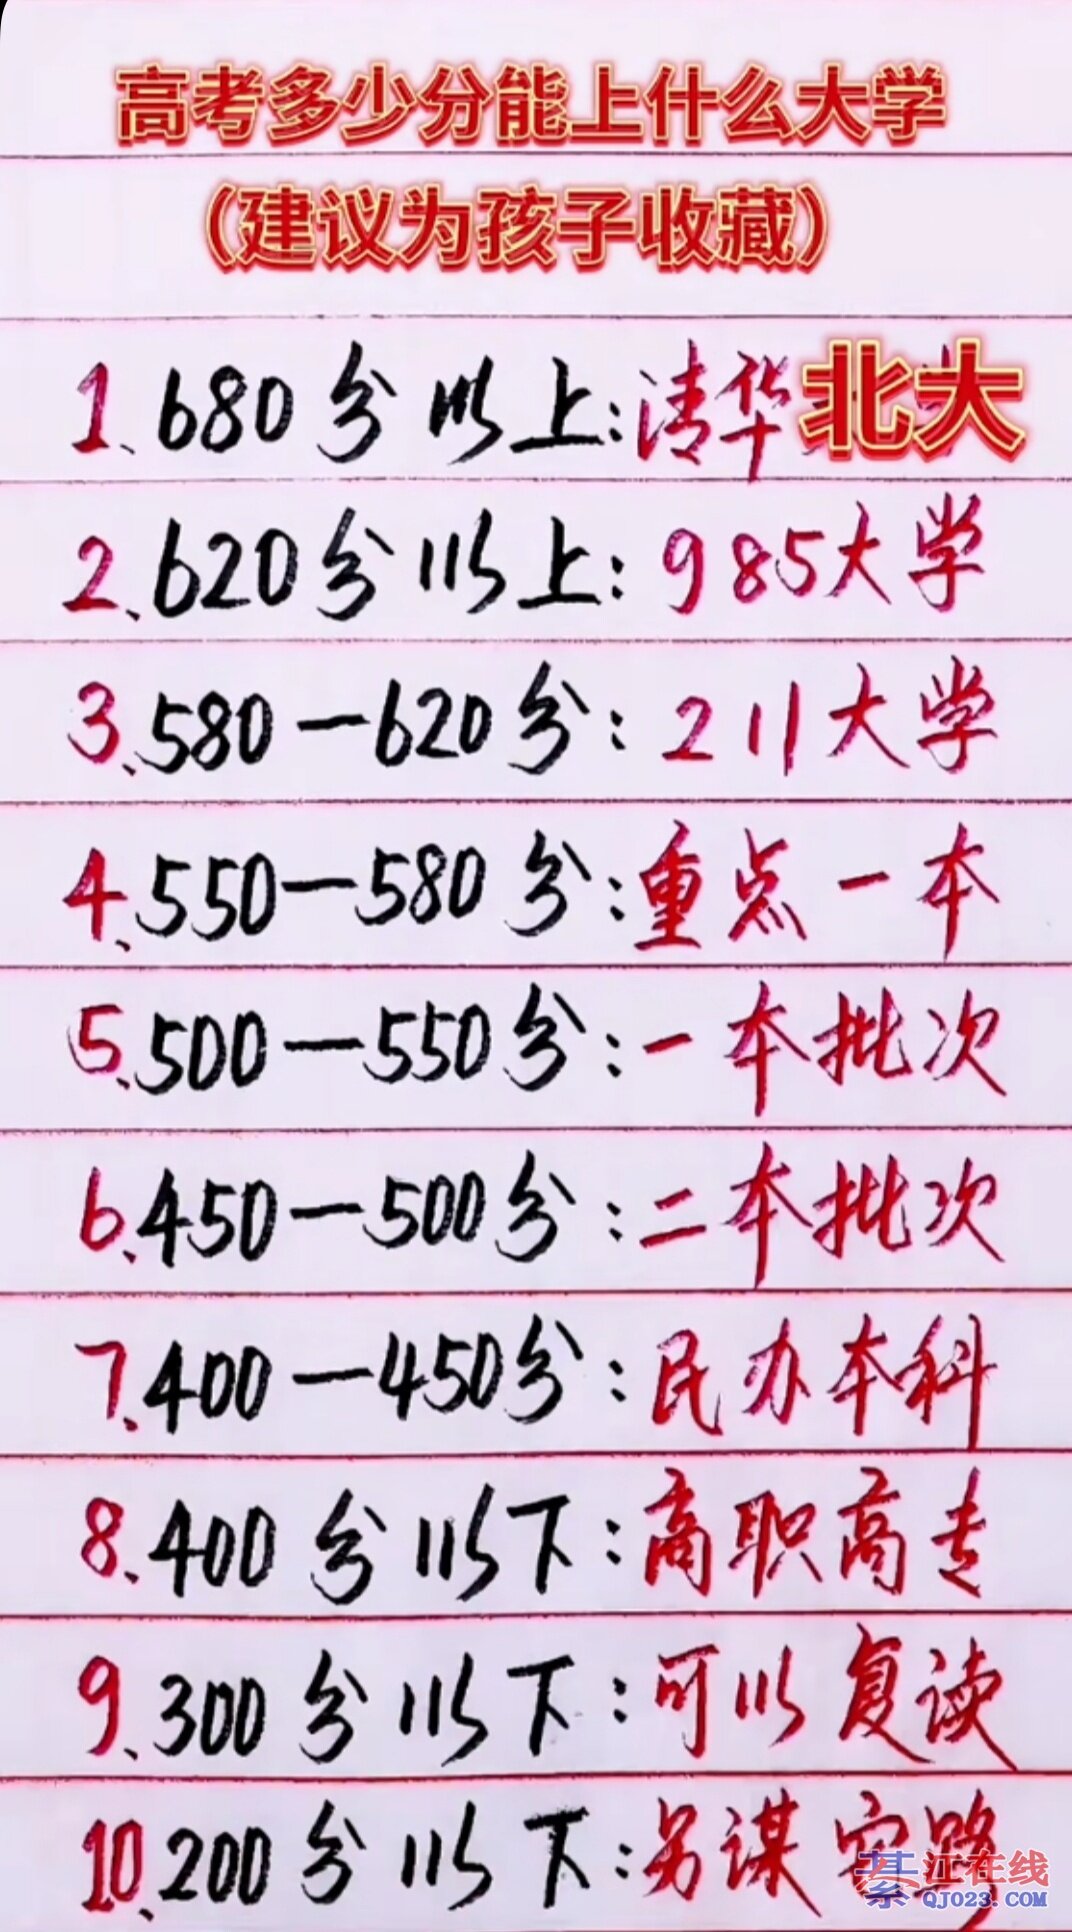 高考多少分能上什么大学
（建议为孩子收藏）
1、680分以上:清华北大
2、620分以上:985大学
3、580—620分:211大学
4、550—580分:重点一本
5、500—550分:一本批次
6、450—500分:二本批次
7、400—450分:民办本科
8、400分以下:高职高专
9、300分以下:可以复读
10、200分以下:另谋出路
綦江在线
QJ023.COM